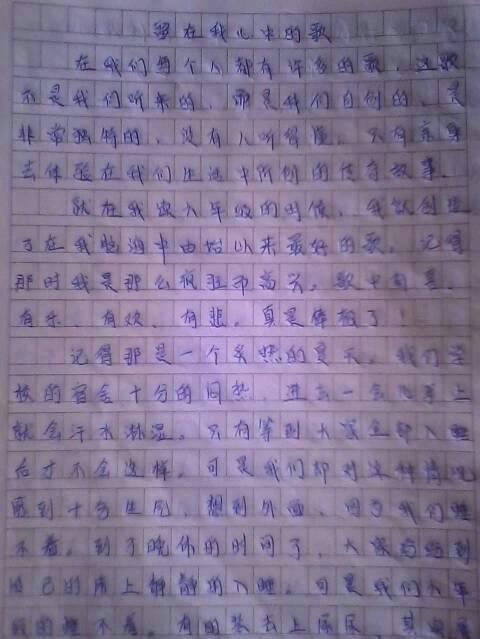 留在我心中的歌
在我们每个人都有许多的歌，这歌
不是我们听来的，而是我们自创的，是
非常独特的，没有人听得懂，只有亲身
去体验在我们生活中所创的传奇故事。
就在我读六年级的时候，我就创造
了在我脑海中由始以来最好的歌。记得
那时我是那么疯狂和高兴，歌中有喜、
有乐、有欢、有悲，真是棒极了！
记得那是一个炎热的夏天，我们学
校的宿舍十分的闷热，进去一会儿身上
就会汗水淋湿。只有等到大家全部入睡
后才不会这样。可是我们却对这种情况
感到十分生气，想到外面，因为我们睡
不着。到了晚休的时间了，大家都回到
自己的床上静静的入睡。可是我们六年
级的睡不着。有的装去上厕所，其